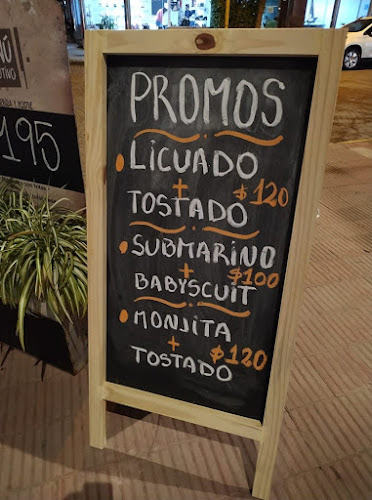 PROMOS
LICUADO
+
$120
TOSTADO
SUBMARINO
+
$100
BABYSCUIT
MONJITA
+
$120
TOSTADO
195